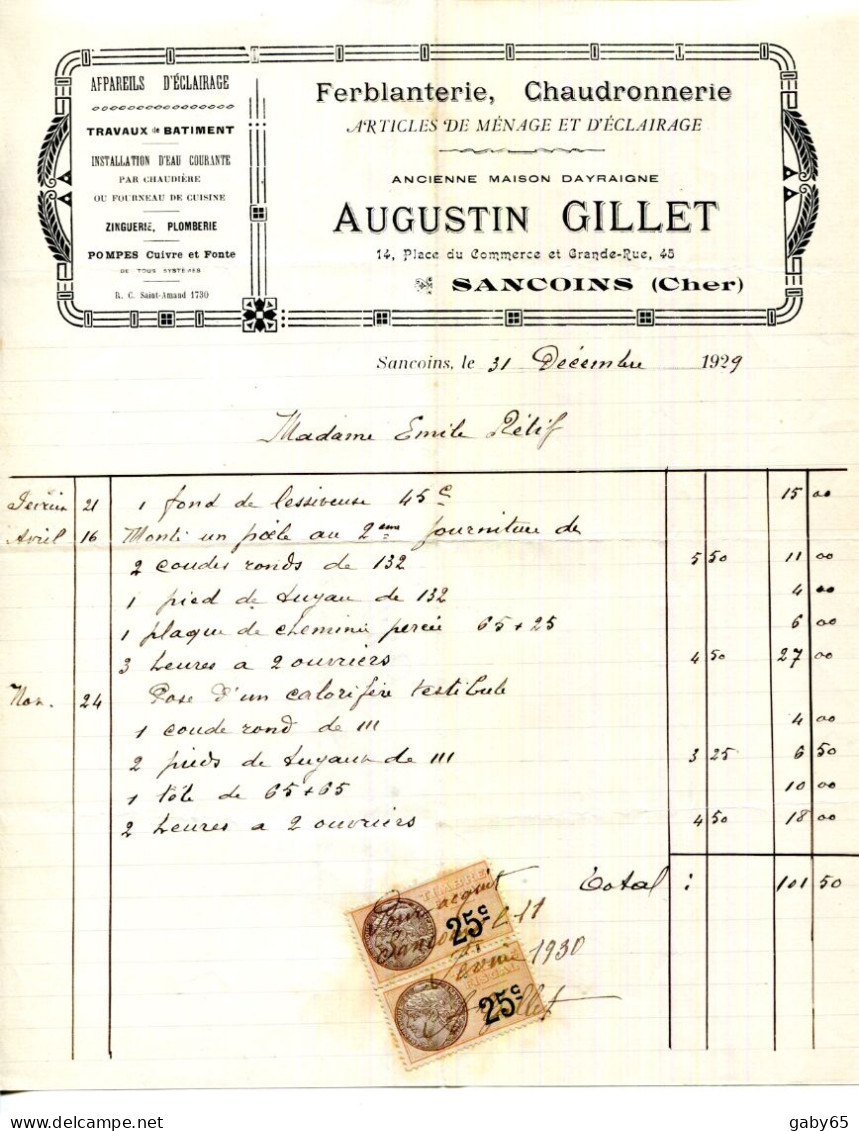 APPAREILS D'ÉCLAIRAGE
TRAVAUX de BATIMENT
INSTALLATION D'EAU COURANTE
PAR CHAUDIÈRE
OU FOURNEAU DE CUISINE
ZINGUERIE, PLOMBERIE
POMPES Cuivre et Fonte
DE TOUS SYSTÈMES
R. C. Saint-Amand 1730
Ferblanterie, Chaudronnerie
ARTICLES DE MÉNAGE ET D'ÉCLAIRAGE
ANCIENNE MAISON DAYRAIGNE
AUGUSTIN GILLET
14, Place du Commerce et Grande-Rue, 45
SANCOINS (Cher)
Sancoins, le 31 Décembre 1929
Madame Emile Rétif
Février 21 1 fond de lessiveuse 45c 15 00
Avril 16 Monté un poêle au 2eme fourniture de
2 coudes ronds de 132 5 50 11 00
1 pied de tuyau de 132 4 00
1 plaque de cheminée percée 65+25 6 00
3 heures a 2 ouvriers 4 50 27 00
Nov. 24 Pose d'un calorifère vestibule
1 coude rond de 111 4 00
2 pieds de tuyaux de 111 3 25 6 50
1 tôle de 65+65 10 00
2 heures a 2 ouvriers 4 50 18 00
Total : 101 50
Pour acquit
Sancoins le 11
25c
1930
FISCAL
25c
AGillet
gaby65